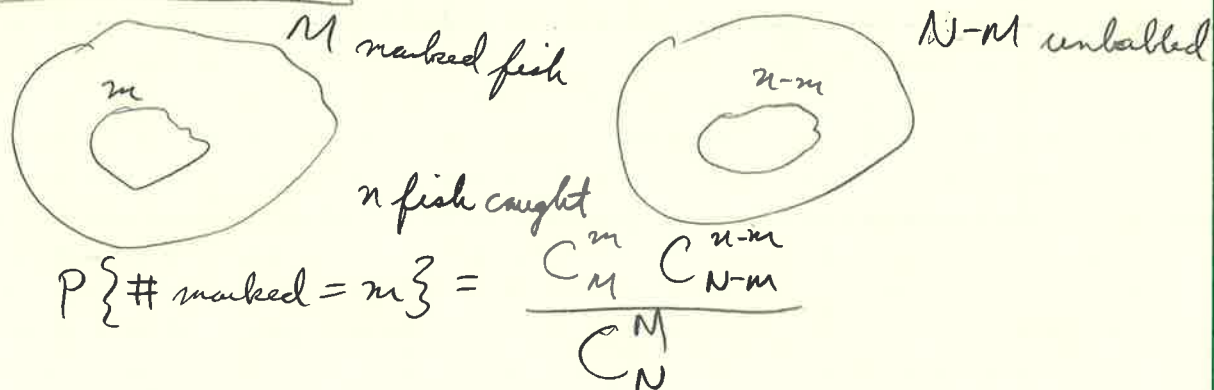 M marked fish
N-M unlabbled
m
n-m
n fish caught
P{# marked = m} = \frac{C_M^m C_{N-m}^{n-m}}{C_N^M}